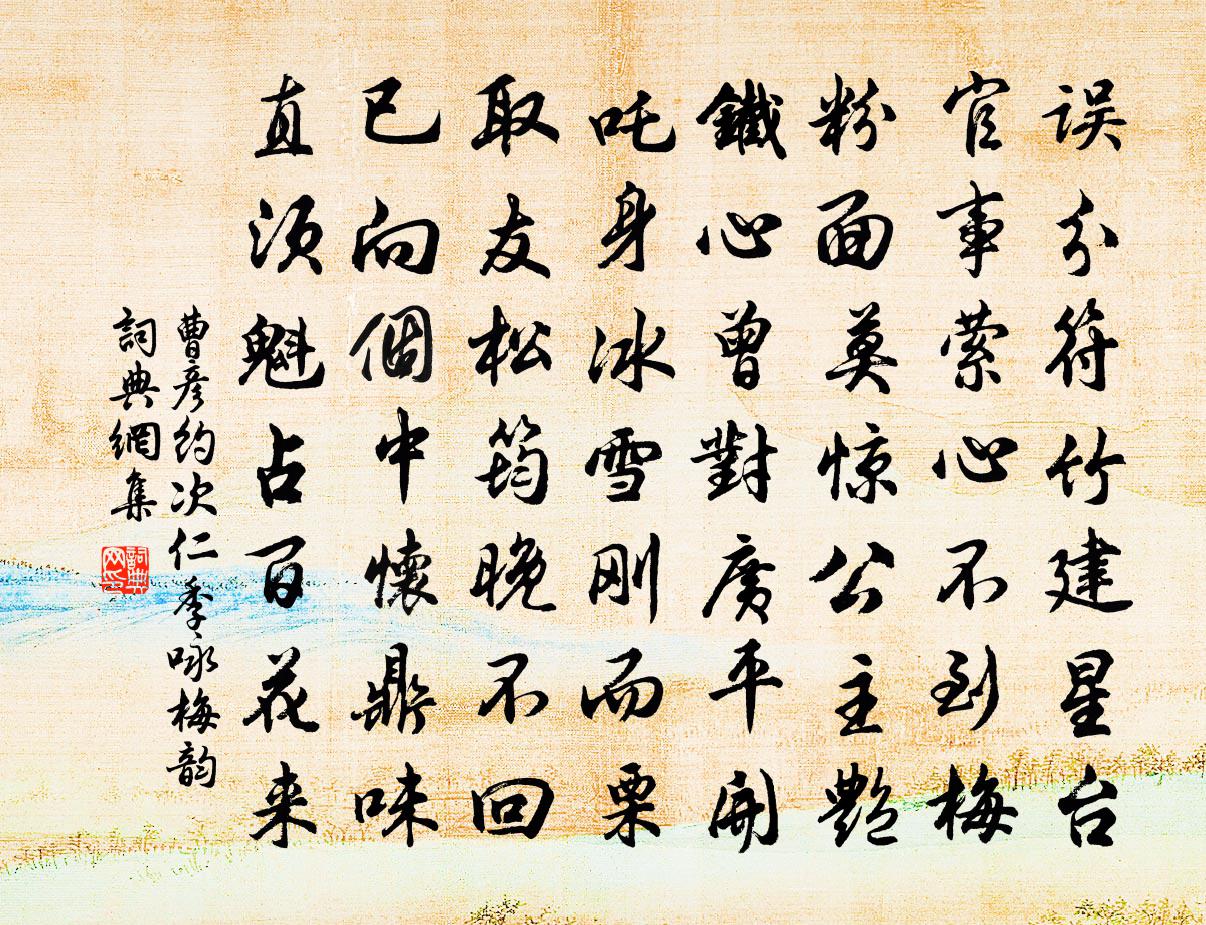 误分符竹建星台
官事萦心不到梅
粉面莫惊公主艷
鐵心曾對廣平開
吒身冰雪刚而栗
取友松筠晚不回
已向個中懷鼎味
直须魁占百花来
曹彦约次仁季咏梅韵
詞典網集
詞典网印